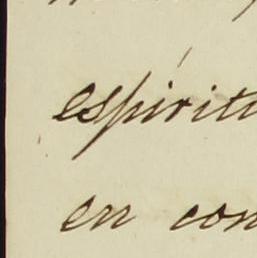 espiritu
en con